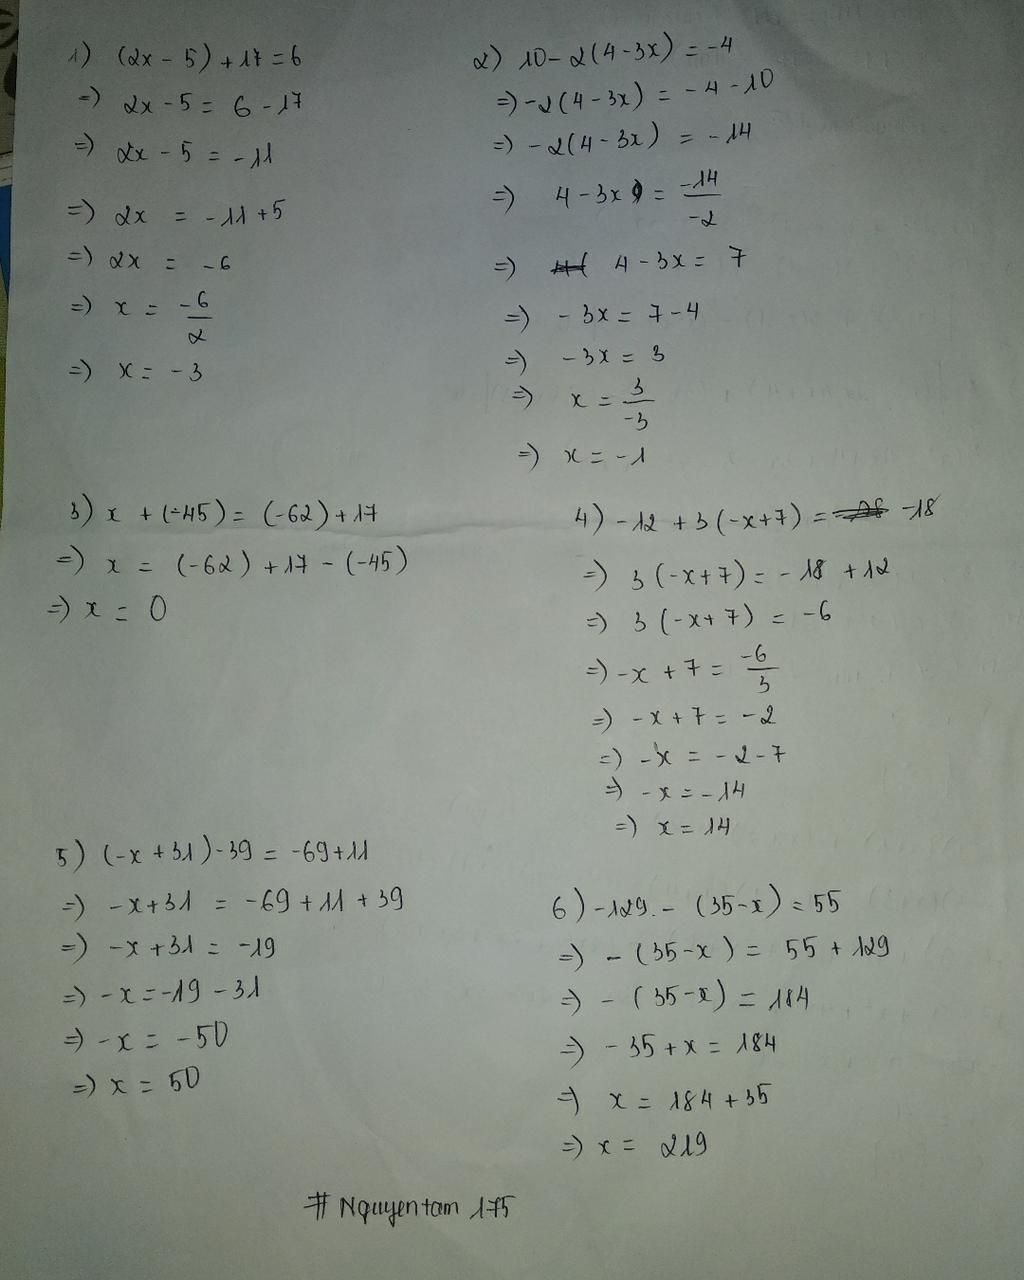 1) (2x - 5) + 17 = 6
=> 2x - 5 = 6 - 17
=> 2x - 5 = -11
=> 2x = -11 + 5
=> 2x = -6
=> x = -6/2
=> x = -3
2) 10 - 2(4 - 3x) = -4
=> -2(4 - 3x) = -4 - 10
=> -2(4 - 3x) = -14
=> 4 - 3x = -14/-2
=> 4 - 3x = 7
=> -3x = 7 - 4
=> -3x = 3
=> x = 3/-3
=> x = -1
3) x + (-45) = (-62) + 17
=> x = (-62) + 17 - (-45)
=> x = 0
4) -12 + 3(-x+7) = -18
=> 3(-x+7) = -18 + 12
=> 3(-x+7) = -6
=> -x + 7 = -6/3
=> -x + 7 = -2
=> -x = -2 - 7
=> -x = -14
=> x = 14
5) (-x + 31) - 39 = -69 + 11
=> -x + 31 = -69 + 11 + 39
=> -x + 31 = -19
=> -x = -19 - 31
=> -x = -50
=> x = 50
6) -129 - (35 - x) = 55
=> -(35 - x) = 55 + 129
=> -(35 - x) = 184
=> -35 + x = 184
=> x = 184 + 35
=> x = 219
# Nguyentam 175